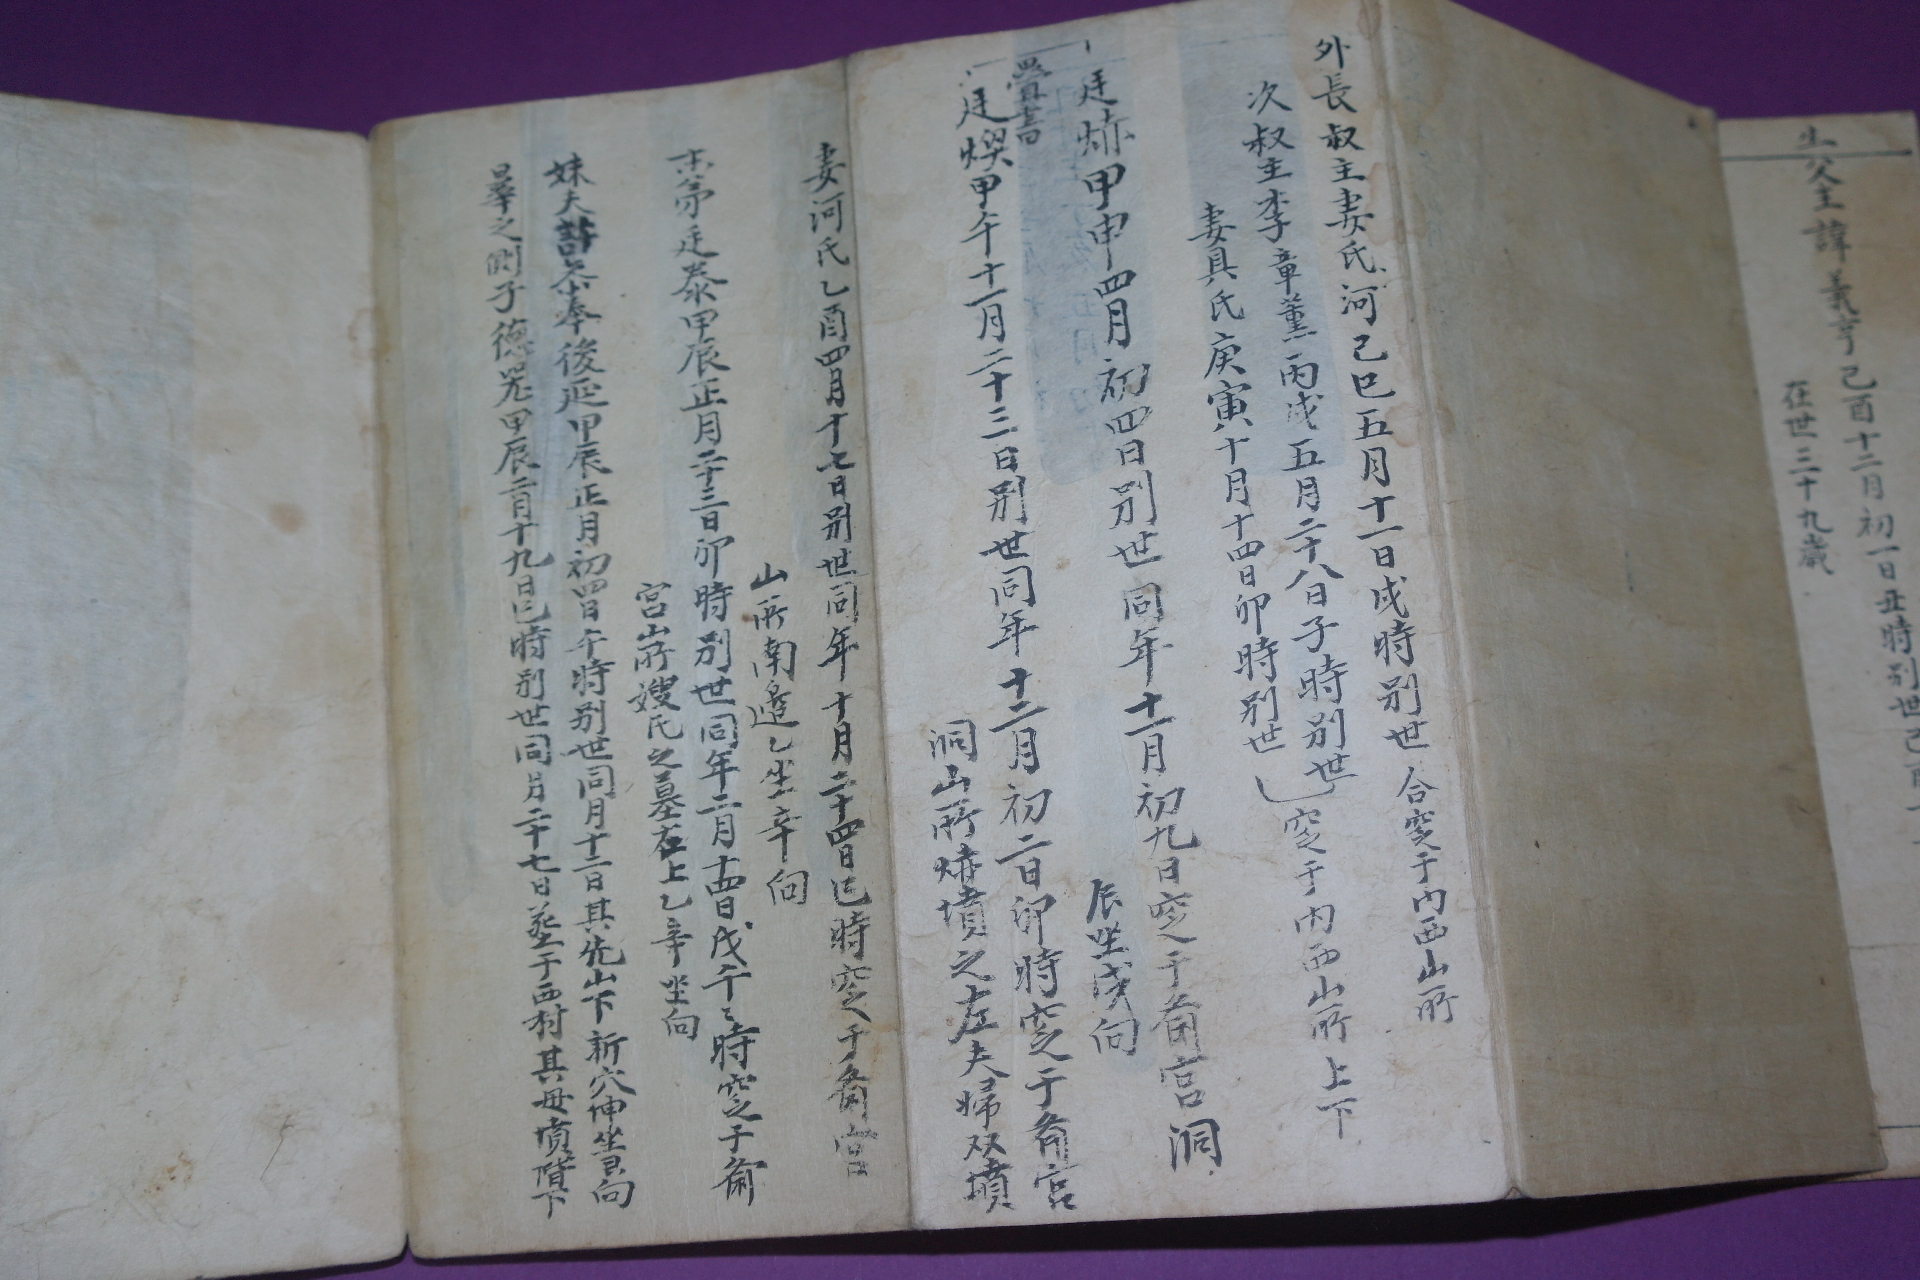 生父主諱義亨己酉十二月初一日丑時別世己酉十
在世三十九歲
外長叔主妻氏河己巳五月十一日戌時別世 合窆于內西山所
次叔主李章薰丙戌五月二十八日子時別世 窆于內西山所上下
妻具氏庚寅十月十四日卯時別世
廷㶼甲申四月初四日別世同年十一月初九日窆于裔宮洞
辰坐戌向
廷煥甲午十一月二十三日別世同年十二月初二日卯時窆于裔宮
洞山所㶼墳之左夫婦双墳
妻河氏乙酉四月十七日別世同年十月二十四日巳時窆于裔宮
山所南邊乙坐辛向
末弟廷泰甲辰正月二十三日卯時別世同年二月十四日戊午々時窆于裔
宮山所嫂氏之墓在上乙辛坐向
妹夫許奉後延甲辰正月初四日午時別世同月十二日其先山下新穴坤坐向
畢之側子德 甲辰二月十九日巳時別世同月二十七日葬于西村其母墳階下